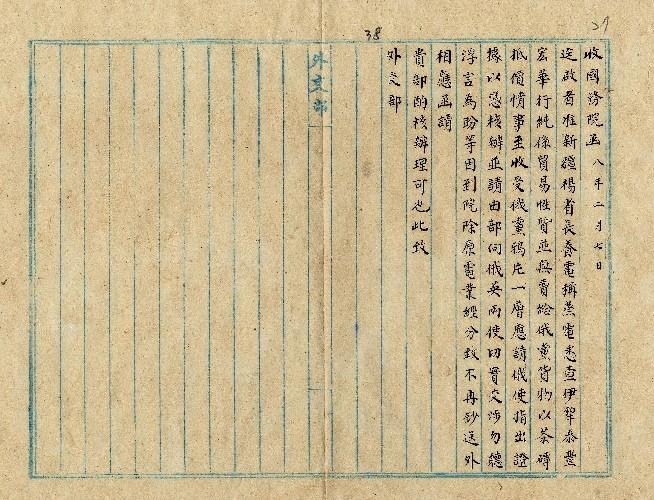 37
38
收國務院函 八年二月七日
逕啟者准新疆楊省長養電稱蒸電悉查伊犂泰豐
宏華行純係貿易性質並無賣給俄黨貨物以茶磚
抵償情事至收受俄黨鴉片一層應請俄使指出證
據以憑核辦並請由部向俄英兩使切實交涉勿聽
浮言為盼等因到院除原電業經分致不再鈔送外
相應函請
貴部酌核辦理可也此致
外交部
外交部